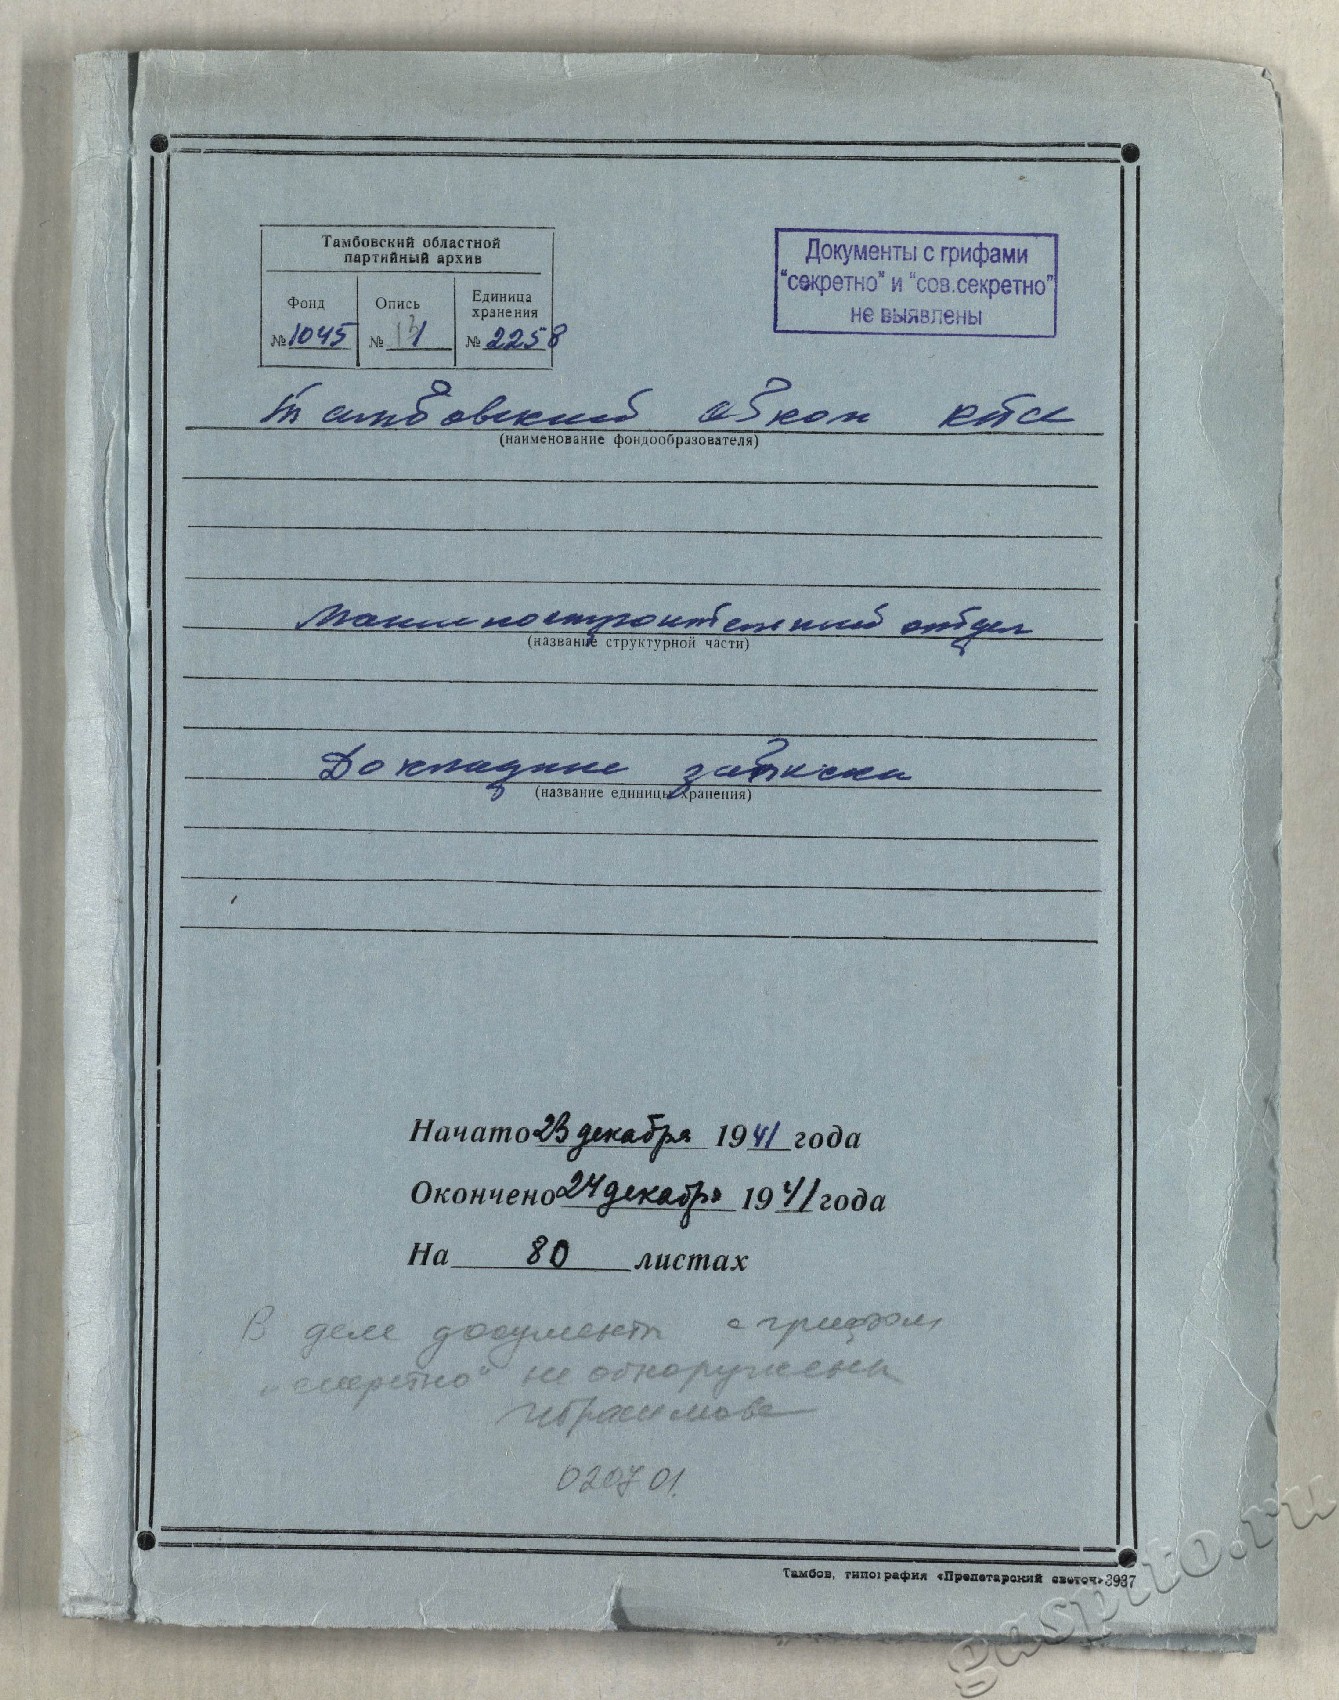 Тамбовский областной
партийный архив
Фонд
№ 1045
Опись
№ 1
Единица
хранения
№ 2258
Документы с грифами
"секретно" и "сов.секретно"
не выявлены
Тамбовский обком КПСС
(наименование фондообразователя)
Машиностроительный отдел
(название структурной части)
Докладные записки
(название единицы хранения)
Начато 23 декабря 1941 года
Окончено 24 декабря 1941 года
На 80 листах
В деле документы с грифом
„секретно" не обнаружены
Ибрагимова
020701.
Тамбов, типография «Пролетарский светоч» 3937
gaspito.ru